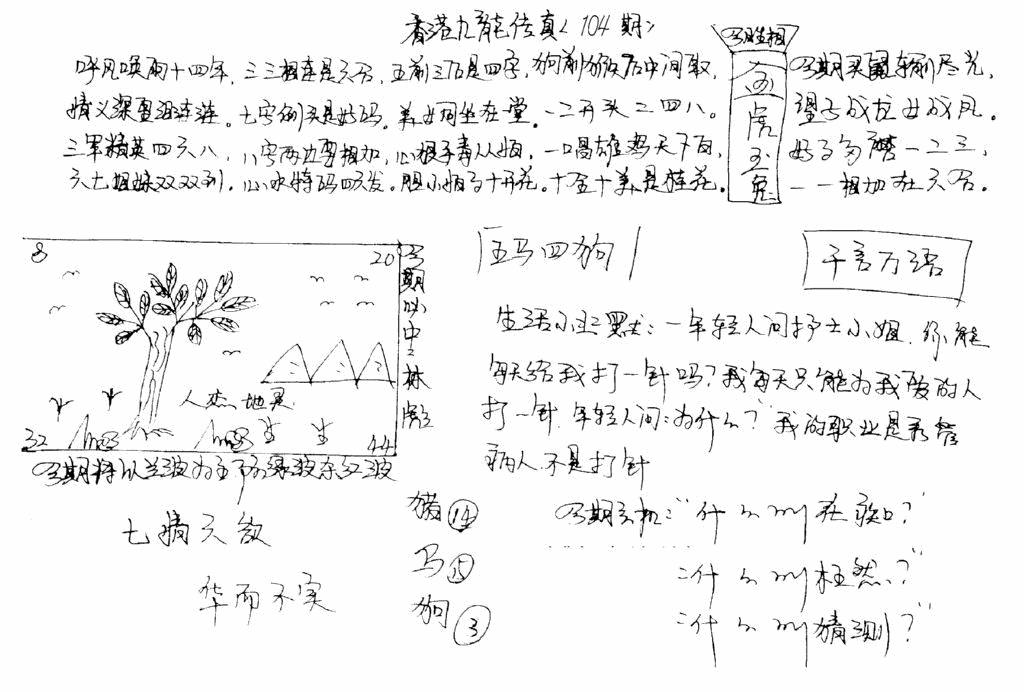 香港九龙传真〈104期〉
呼风唤雨十四年，三三相连是六合，五前三后是四字，狗前猴后中间取，
情义深重泪连连。七字例头是好码。美女同坐在堂。一二开头二四八。
三军精英四六八，八字两边要相加，心狠手毒从恼，一唱雄鸡天下白，
六七姐妹双双到，心水特码四六发。胆小怕了十开花。十全十美是桂花。
今期生相
金
虎
玉
兔
今期买鼠车前尽光，
望子成龙女成凤。
好事多磨一二三，
一一相加在六合。
8
20
32
44
人杰地灵
今期必中
林
今期特以兰波为主
绿波
红波
五马四狗
千言万语
生活小
：一年轻人问护士小姐，你能
每天给我打一针吗？我每天只能为我爱的人
打一针，年轻人问：为什么？我的职业是看管
病人，不是打针
七情六欲
华而不实
猪⑭
马⑮
狗③
今期玄机：“什么
？”
“什么
枉然？”
“什么
猜测？”